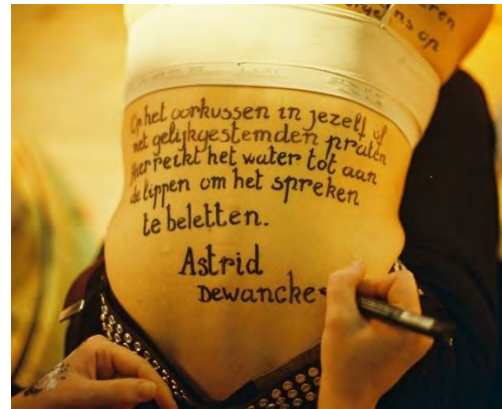 ns op
Op het oorkussen in jezelf of
met gelijkgestemden praten
Hier reikt het water tot aan
de lippen om het spreken
te beletten.
Astrid
Dewancke